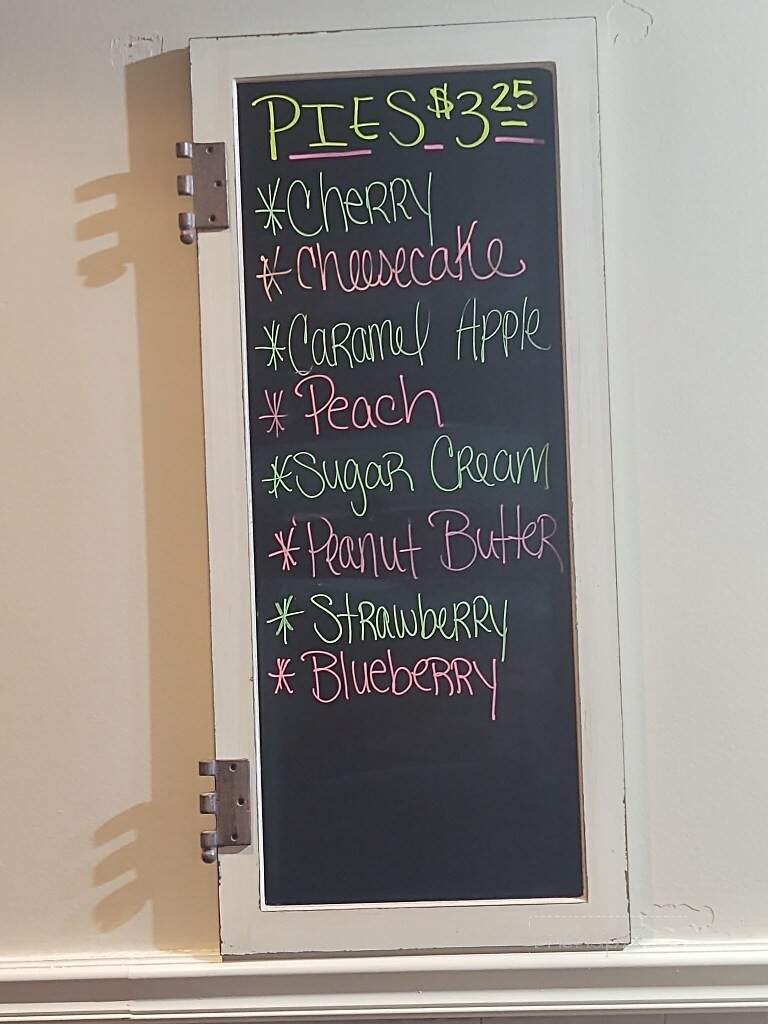 PIES $3.25
*Cherry
*Cheesecake
*Caramel Apple
*Peach
*Sugar Cream
*Peanut Butter
*Strawberry
*Blueberry